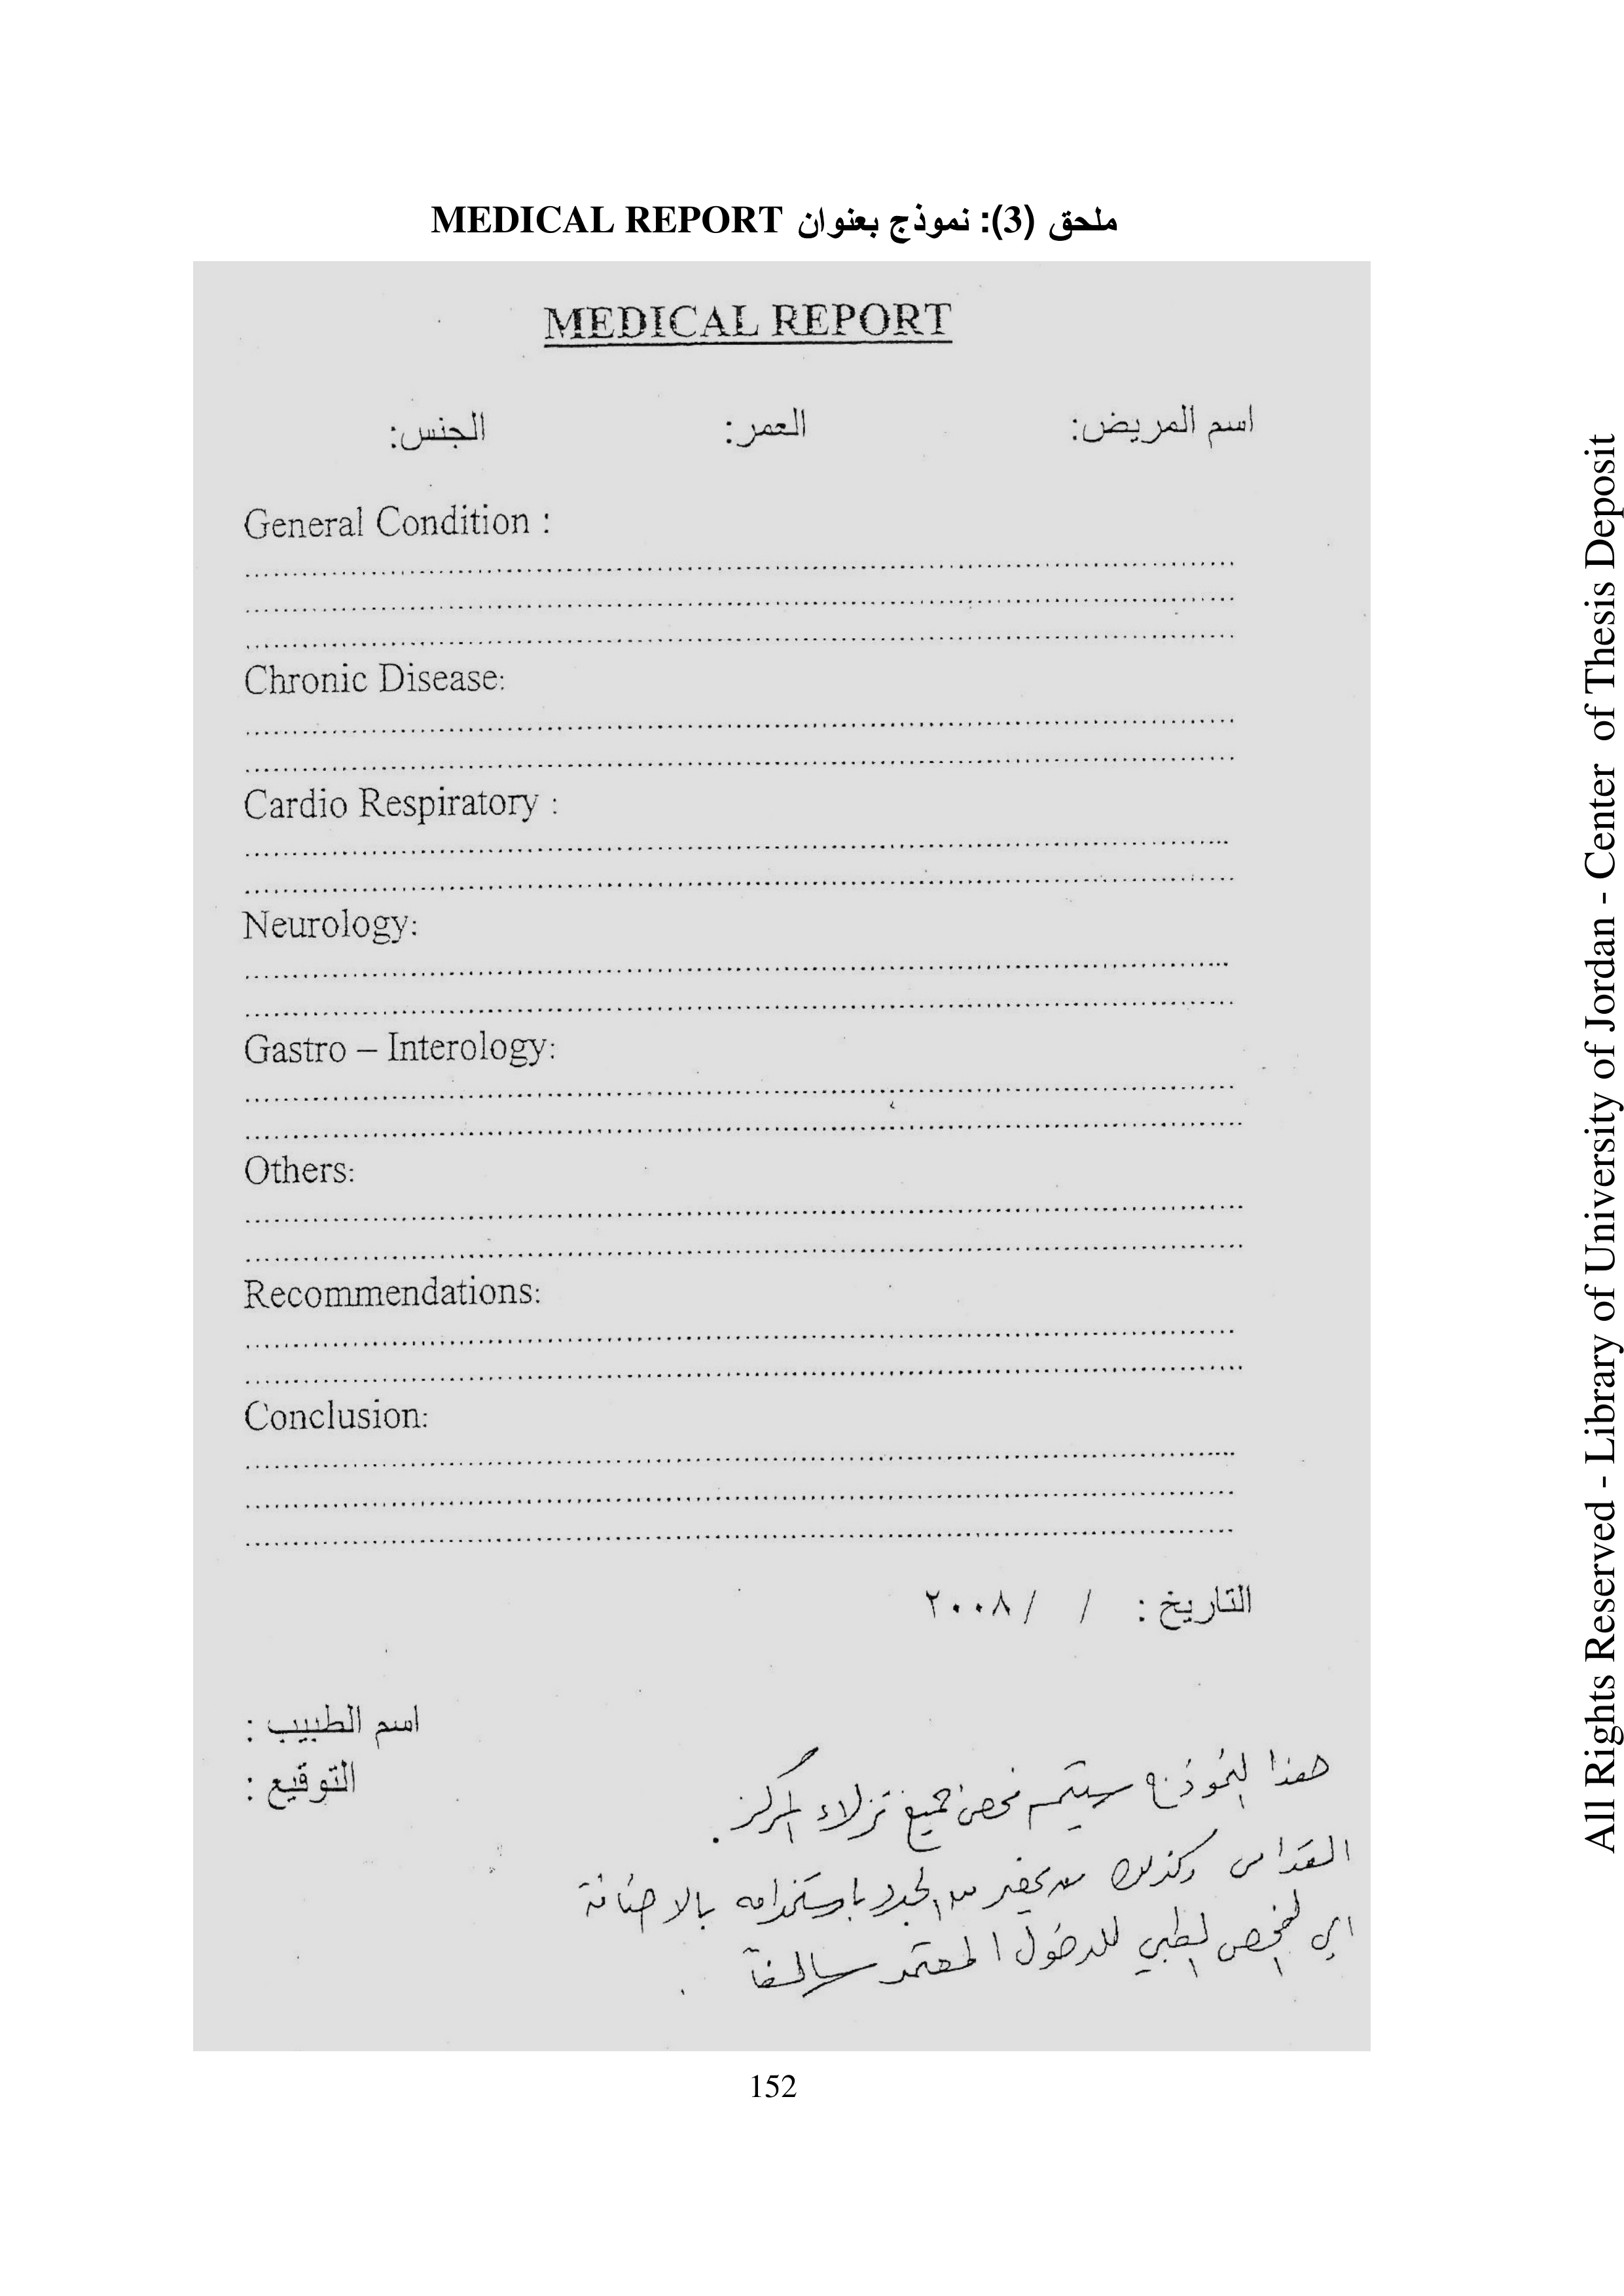 ملحق (3): نموذج بعنوان MEDICAL REPORT
MEDICAL REPORT
اسم المريض: العمر: الجنس:
General Condition :
Chronic Disease:
Cardio Respiratory :
Neurology:
Gastro – Interology:
Others:
Recommendations:
Conclusion:
التاريخ : / / ٢٠٠٨
اسم الطبيب :
التوقيع :
هذا النموذج سيتم فحص جميع نزلاء المركز .
القدامى وكذلك من يحضر من الجدد باستخدامه بالاضافة
الى الفحص الطبي للدخول المعتمد سالفاً .
152
All Rights Reserved - Library of University of Jordan - Center of Thesis Deposit